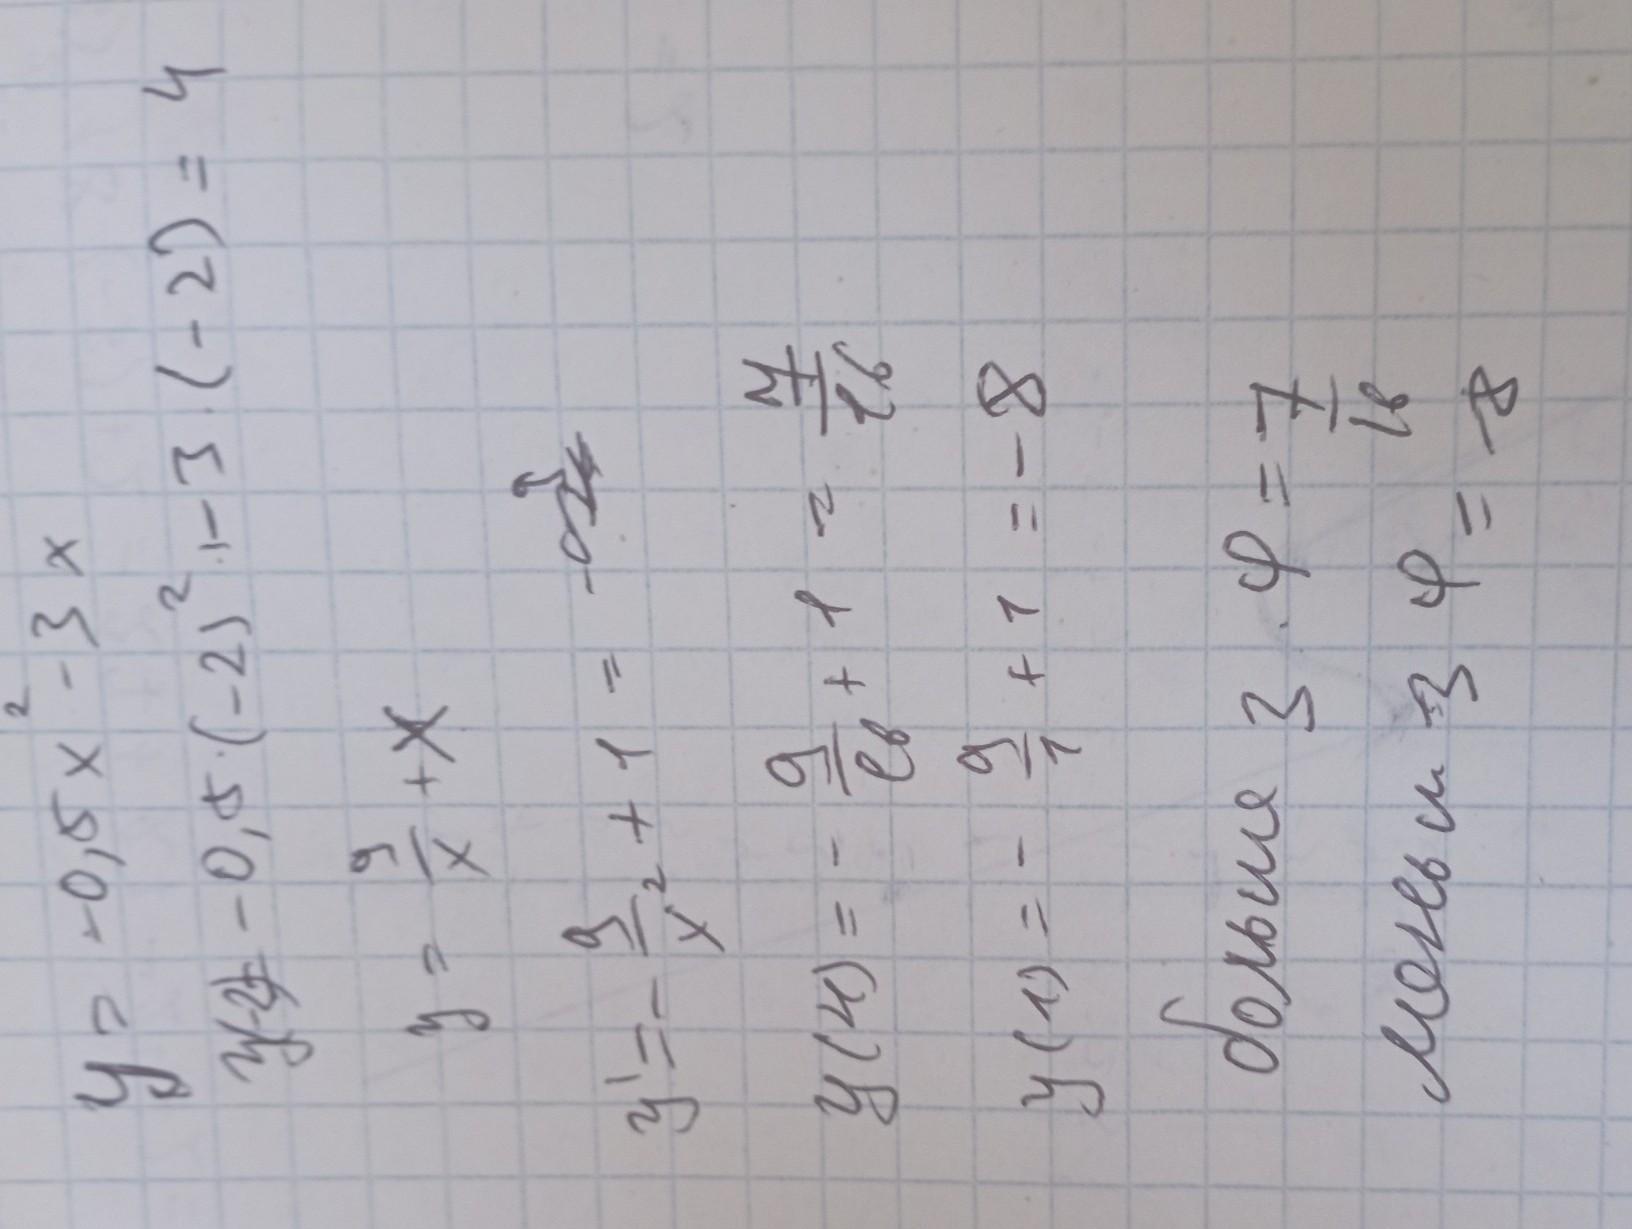 y = -0,5x² - 3x
-0,5·(-2)² - 3·(-2) = 4
y = 9/x + x
y' = -9/x² + 1 =
y(4) = -9/16 + 1 = 7/16
y(1) = -9/1 + 1 = -8
больше з φ = 7/16
меньш з φ = -8